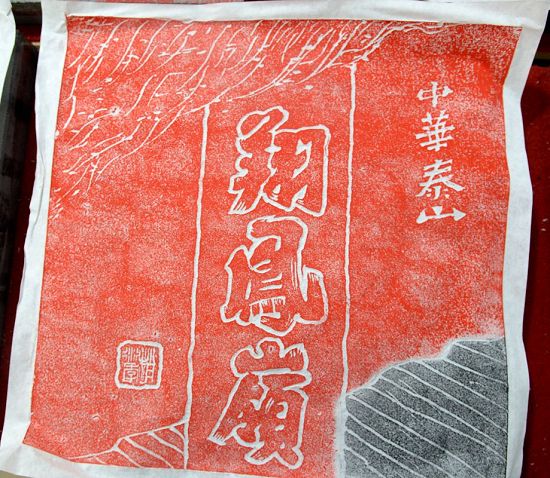 中華泰山
翔鳳嶺